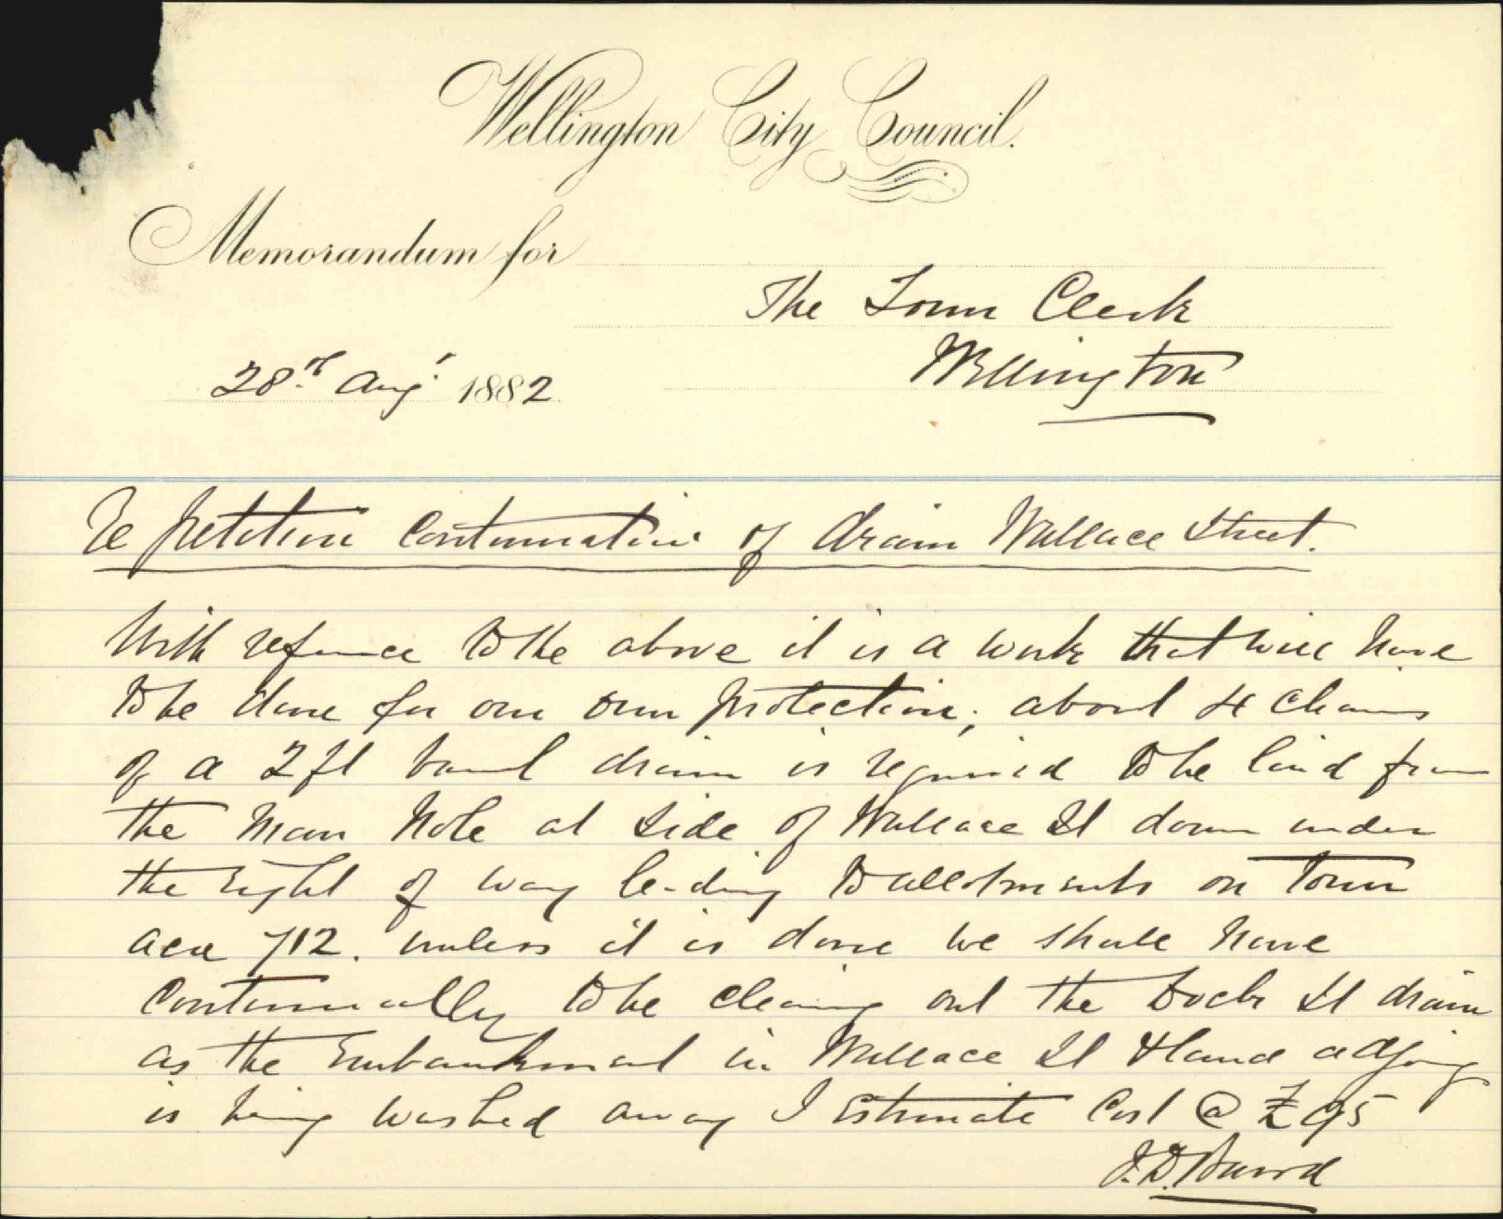 Wellington City Council.
Memorandum for
The Town Clerk
Wellington
28th Aug! 1882
Re petition Continuation of drain Wallace Street.
With reference to the above it is a work that will have
to be done for our own protection; about 4 chains
of a 2 ft barrel drain is required to be laid from
the Man Hole at Side of Wallace St down under
the right of way leading to allotments on Town
acre 712. unless it is done we shall have
Continually to be cleaning out the Dock St drain
as the Embankment in Wallace St & land adjoing
is being washed away I Estimate Cost @ £95
J.D. Baird